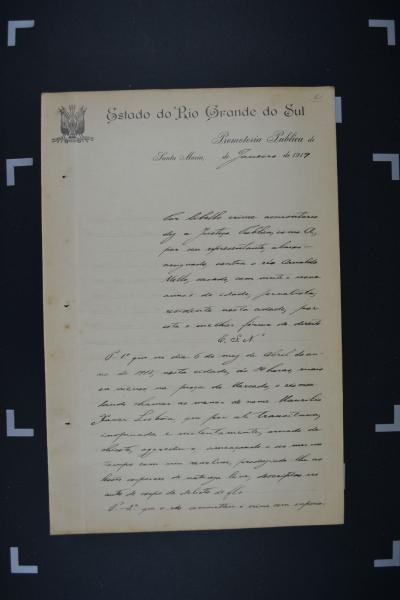 Estado do Rio Grande do Sul
Promotoria Publica de
Santa Maria, de Janeiro de 1919
Por libello crime accusatorio
diz a Justiça Publica, como A,
por seu representante, abaixo
assignado, contra o réo Arnaldo
Mello, casado, com vinte e nove
annos de idade, jornalista,
residente nesta cidade, por
esta e melhor fórma de direito
E. S. N.
P. 1º que no dia 6 do mez de Abril do an-
no de 1918, nesta cidade, ás horas, mais
ou menos, na praça do Mercado, o réo
chamar no menor de nome
Xavier Lisbôa, que por ali transitava,
e violentamente, armado de
chicote, aggrediu-o, ameaçando-o ao mesmo
tempo com um revolver, produzindo-lhe as
lesões corporaes de natureza leve, descriptas no
auto de corpo de delicto de fls
P. 2º que o réo commetteu o crime com superio-